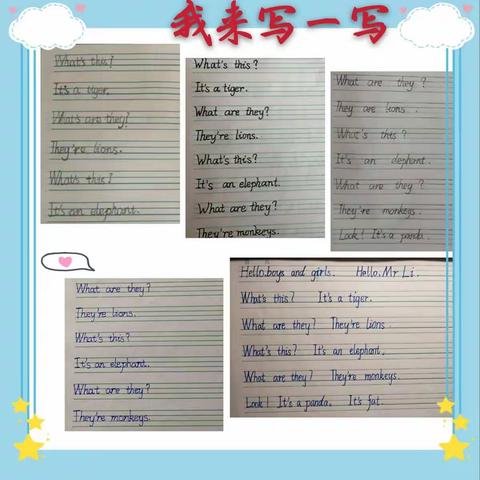 我来写一写
What's this?
It's a tiger.
What's are they?
They're lions.
What's this?
It's an elephant.
What's this?
It's a tiger.
What are they?
They're lions.
What's this?
It's an elephant.
What are they?
They're monkeys.
What are they?
They are lions.
What's this?
It's an elephant.
What are they?
They're monkeys.
Look! It's a panda.
What are they?
They're lions.
What's this?
It's an elephant.
What are they?
They're monkeys.
Hello,boys and girls. Hello,Mr Li.
What's this? It's a tiger.
What are they? They're lions.
What's this? It's an elephant.
What are they? They're monkeys.
Look! It's a panda. It's fat.